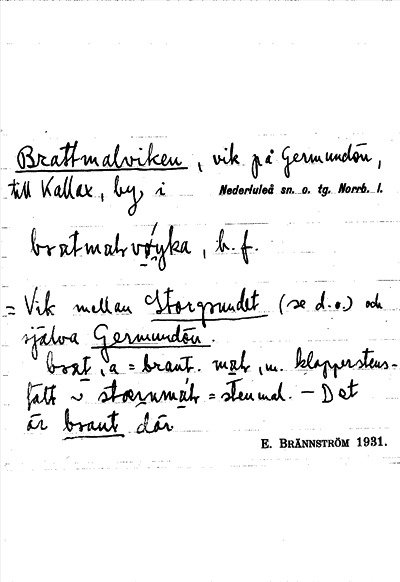 Brattmalviken, vik på Germundön,
till Kallax, by i Nederluleå sn. o. tg. Norrb. l.
bratmalvøyka, b. f.
= Vik mellan Storgrundet (se d.o.) och
själva Germundön.
brat, a = brant. mal, m. klapperstens-
fält ~ = stenmal. – Det
är brant där
E. BRÄNNSTRÖM 1931.